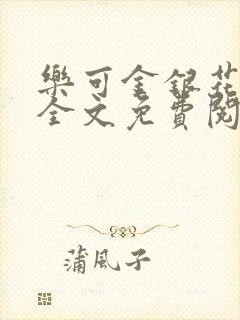 樂可金銀花
全文免費閱
蒲風子